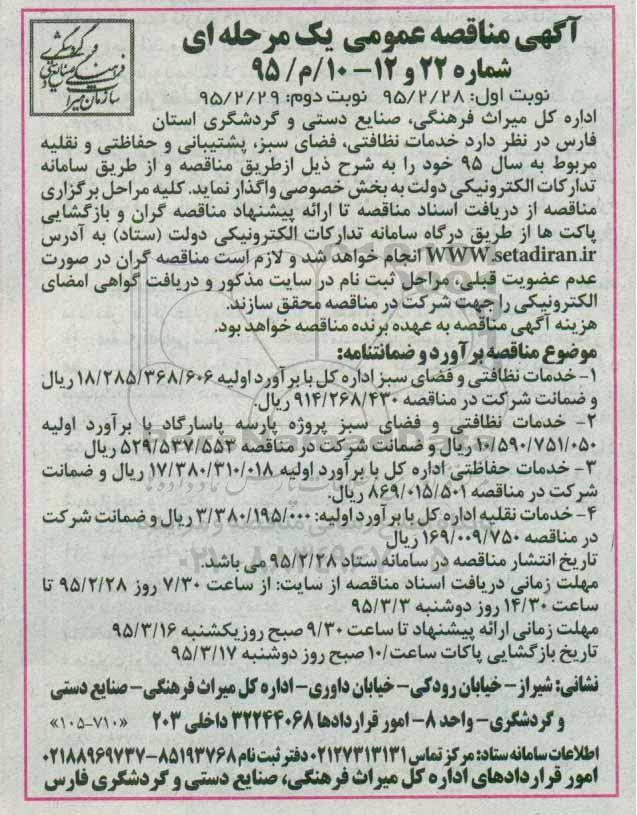 آگهی مناقصه عمومی یک مرحله ای
شماره ۲۲ و ۱۲- ۱۰/م/ ۹۵
نوبت اول: ۹۵/۲/۲۸ نوبت دوم: ۹۵/۲/۲۹
اداره کل میراث فرهنگی، صنایع دستی و گردشگری استان
فارس در نظر دارد خدمات نظافتی، فضای سبز، پشتیبانی و حفاظتی و نقلیه
مربوط به سال ۹۵ خود را به شرح ذیل ازطریق مناقصه و از طریق سامانه
تدارکات الکترونیکی دولت به بخش خصوصی واگذار نماید. کلیه مراحل برگزاری
مناقصه از دریافت اسناد مناقصه تا ارائه پیشنهاد مناقصه گران و بازگشایی
پاکت ها از طریق درگاه سامانه تدارکات الکترونیکی دولت (ستاد) به آدرس
WWW.setadiran.ir انجام خواهد شد و لازم است مناقصه گران در صورت
عدم عضویت قبلی، مراحل ثبت نام در سایت مذکور و دریافت گواهی امضای
الکترونیکی را جهت شرکت در مناقصه محقق سازند.
هزینه آگهی مناقصه به عهده برنده مناقصه خواهد بود.
موضوع مناقصه برآورد و ضمانتنامه:
۱- خدمات نظافتی و فضای سبز اداره کل با برآورد اولیه ۱۸/۲۸۵/۳۶۸/۶۰۶ ریال
و ضمانت شرکت در مناقصه ۹۱۴/۲۶۸/۴۳۰ ریال.
۲- خدمات نظافتی و فضای سبز پروژه پارسه پاسارگاد با برآورد اولیه
۱۰/۵۹۰/۷۵۱/۰۵۰ ریال و ضمانت شرکت در مناقصه ۵۲۹/۵۳۷/۵۵۳ ریال
۳- خدمات حفاظتی اداره کل با برآورد اولیه ۱۷/۳۸۰/۳۱۰/۰۱۸ ریال و ضمانت
شرکت در مناقصه ۸۶۹/۰۱۵/۵۰۱ ریال.
۴- خدمات نقلیه اداره کل با برآورد اولیه: ۳/۳۸۰/۱۹۵/۰۰۰ ریال و ضمانت شرکت
در مناقصه ۱۶۹/۰۰۹/۷۵۰ ریال
تاریخ انتشار مناقصه در سامانه ستاد ۹۵/۲/۲۸ می باشد.
مهلت زمانی دریافت اسناد مناقصه از سایت: از ساعت ۷/۳۰ روز ۹۵/۲/۲۸ تا
ساعت ۱۴/۳۰ روز دوشنبه ۹۵/۳/۳
مهلت زمانی ارائه پیشنهاد تا ساعت ۹/۳۰ صبح روز یکشنبه ۹۵/۳/۱۶
تاریخ بازگشایی پاکات ساعت/۱۰ صبح روز دوشنبه ۹۵/۳/۱۷
نشانی: شیراز- خیابان رودکی- خیابان داوری- اداره کل میراث فرهنگی- صنایع دستی
و گردشگری- واحد ۸- امور قراردادها ۳۲۲۴۴۰۶۸ داخلی ۲۰۳ «۷۱۰-۱۰۵»
اطلاعات سامانه ستاد: مرکز تماس ۰۲۱۲۷۳۱۳۱۳۱ دفتر ثبت نام ۸۵۱۹۳۷۶۸-۰۲۱۸۸۹۶۹۷۳۷
امور قراردادهای اداره کل میراث فرهنگی، صنایع دستی و گردشگری فارس